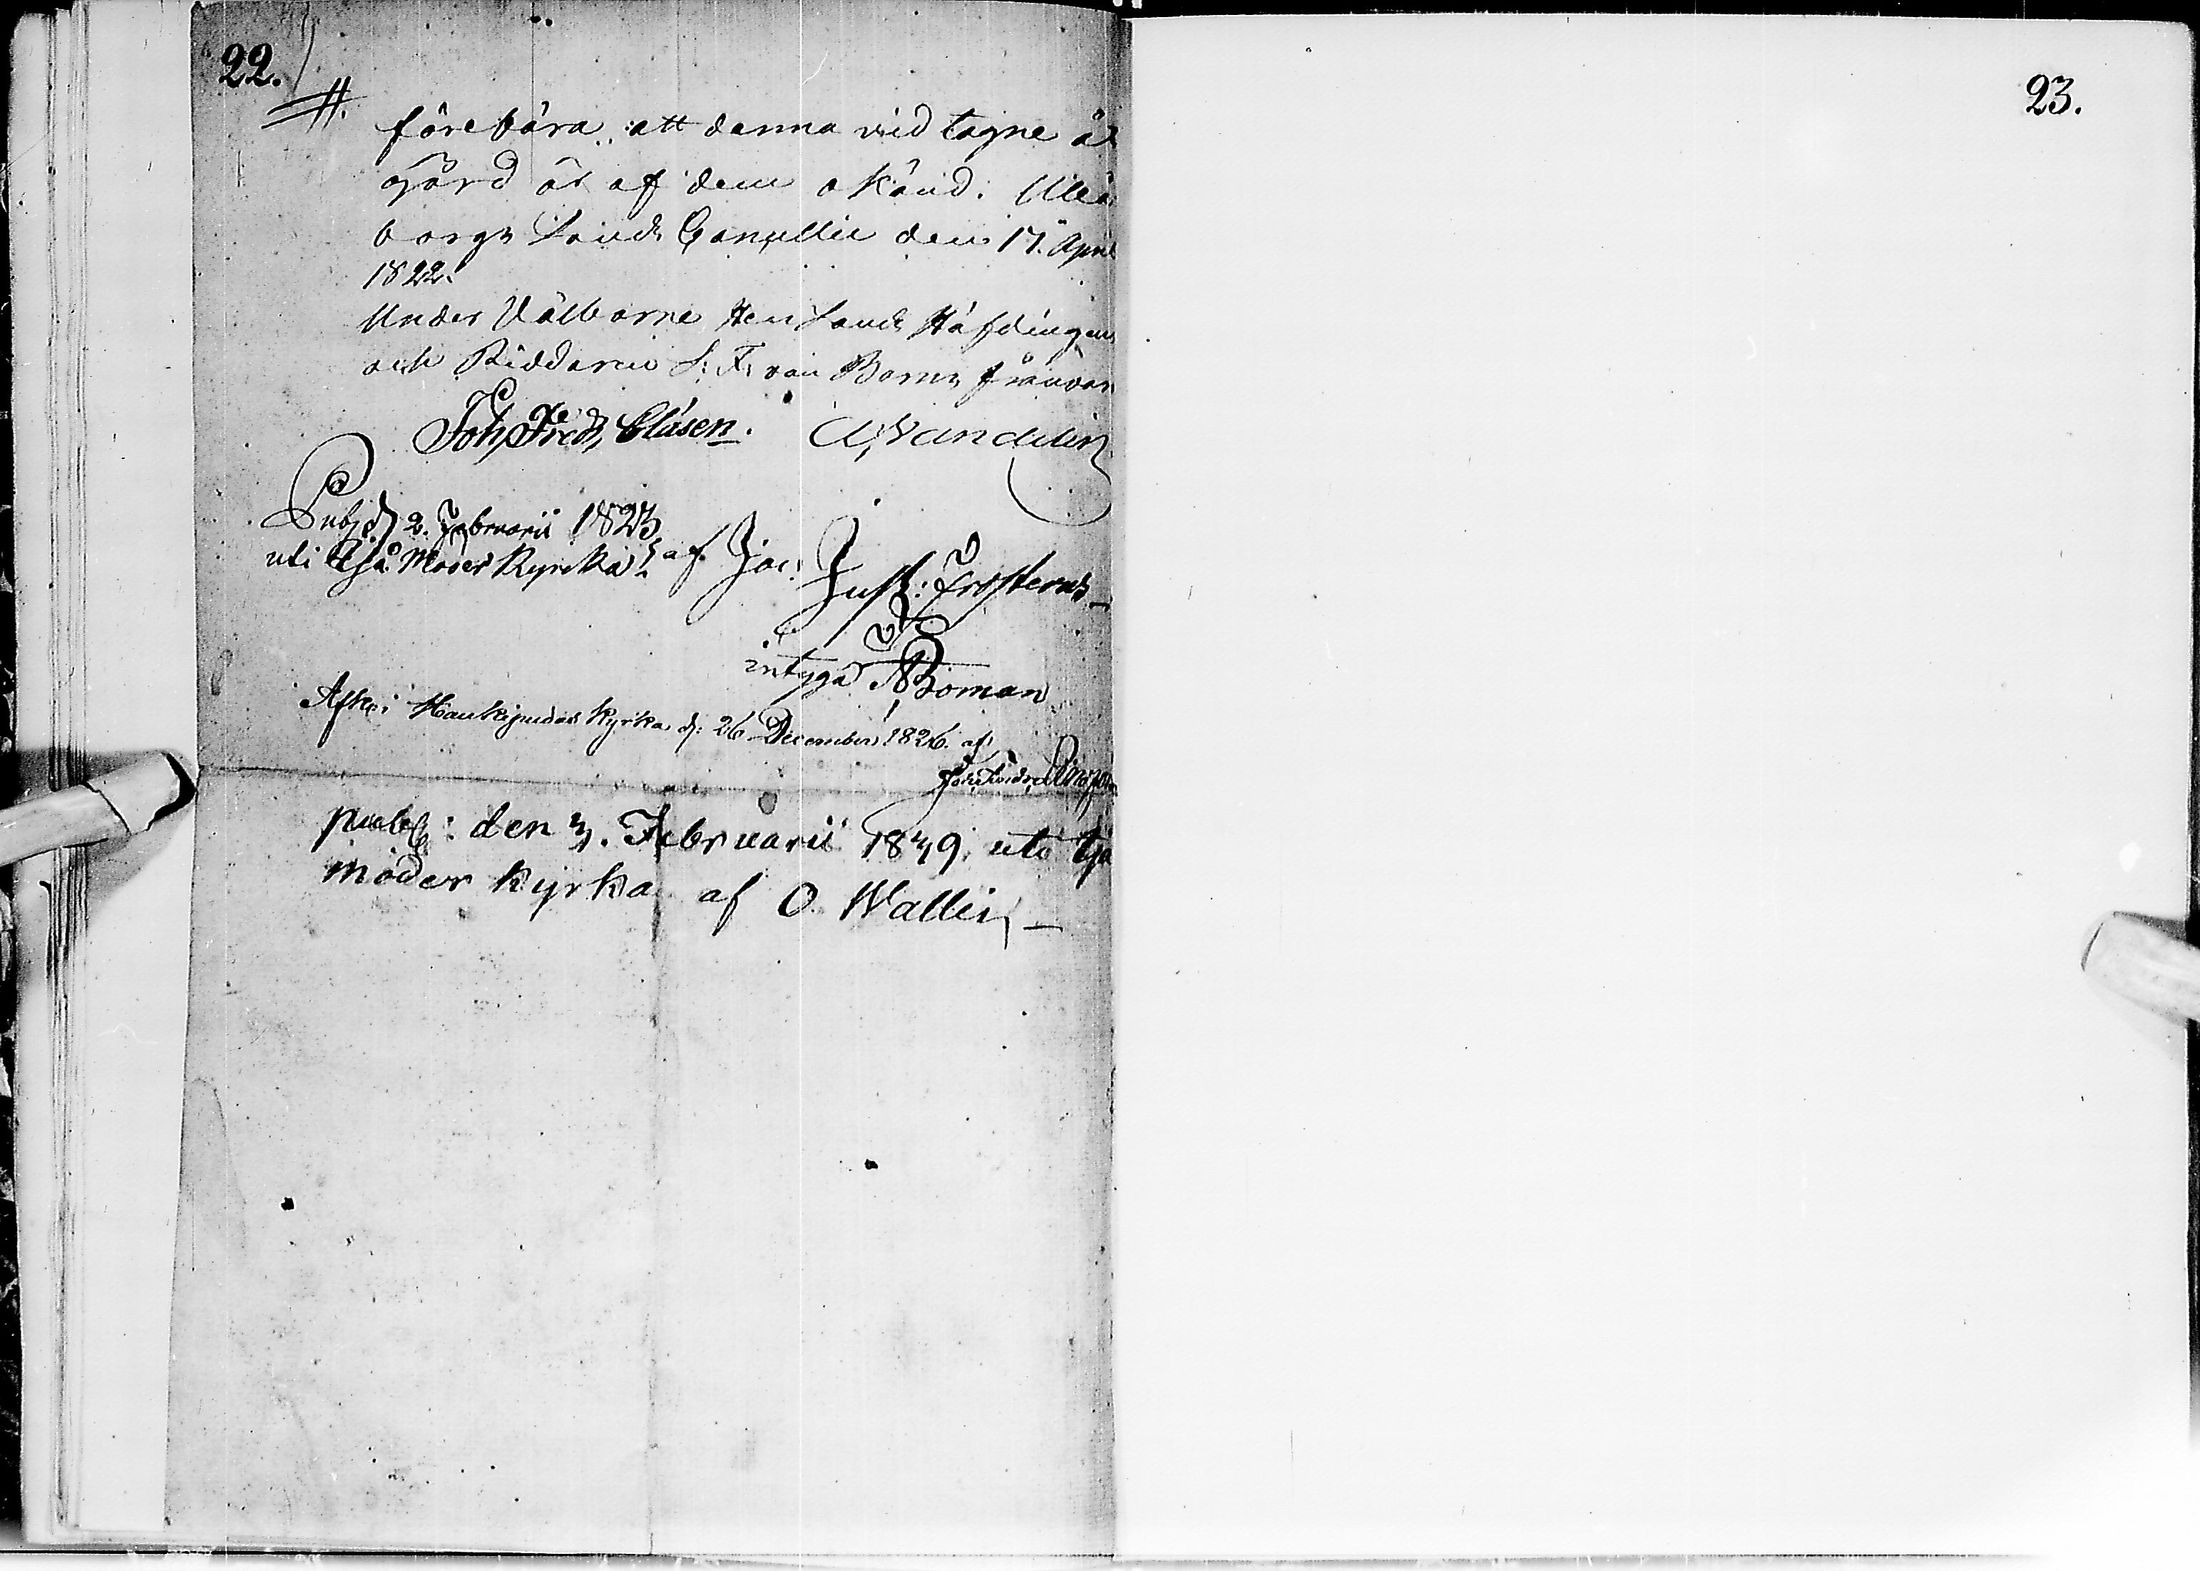 22.
#.
förebära, att denna vidtagne åt
gärd är af dem okänd. Uleå
borgs Lands Cancellie den 17. April
1822.
Under Välborne Herr Lands Höfdingens
och Riddaren S: F: von Borns frånvaro
Joh. Fred. Clasen. A. Wandelin
Publ. d. 2. Februarii 1823
uti Ijå Moder Kyrka af Jac: Just: Frosterus
intyga Boman
i Haukipudas Kyrka d: 26 December 1826. af
publ: den 3. Februarii 1839 uti Ijå
moder kyrka af O. Wallin
23.